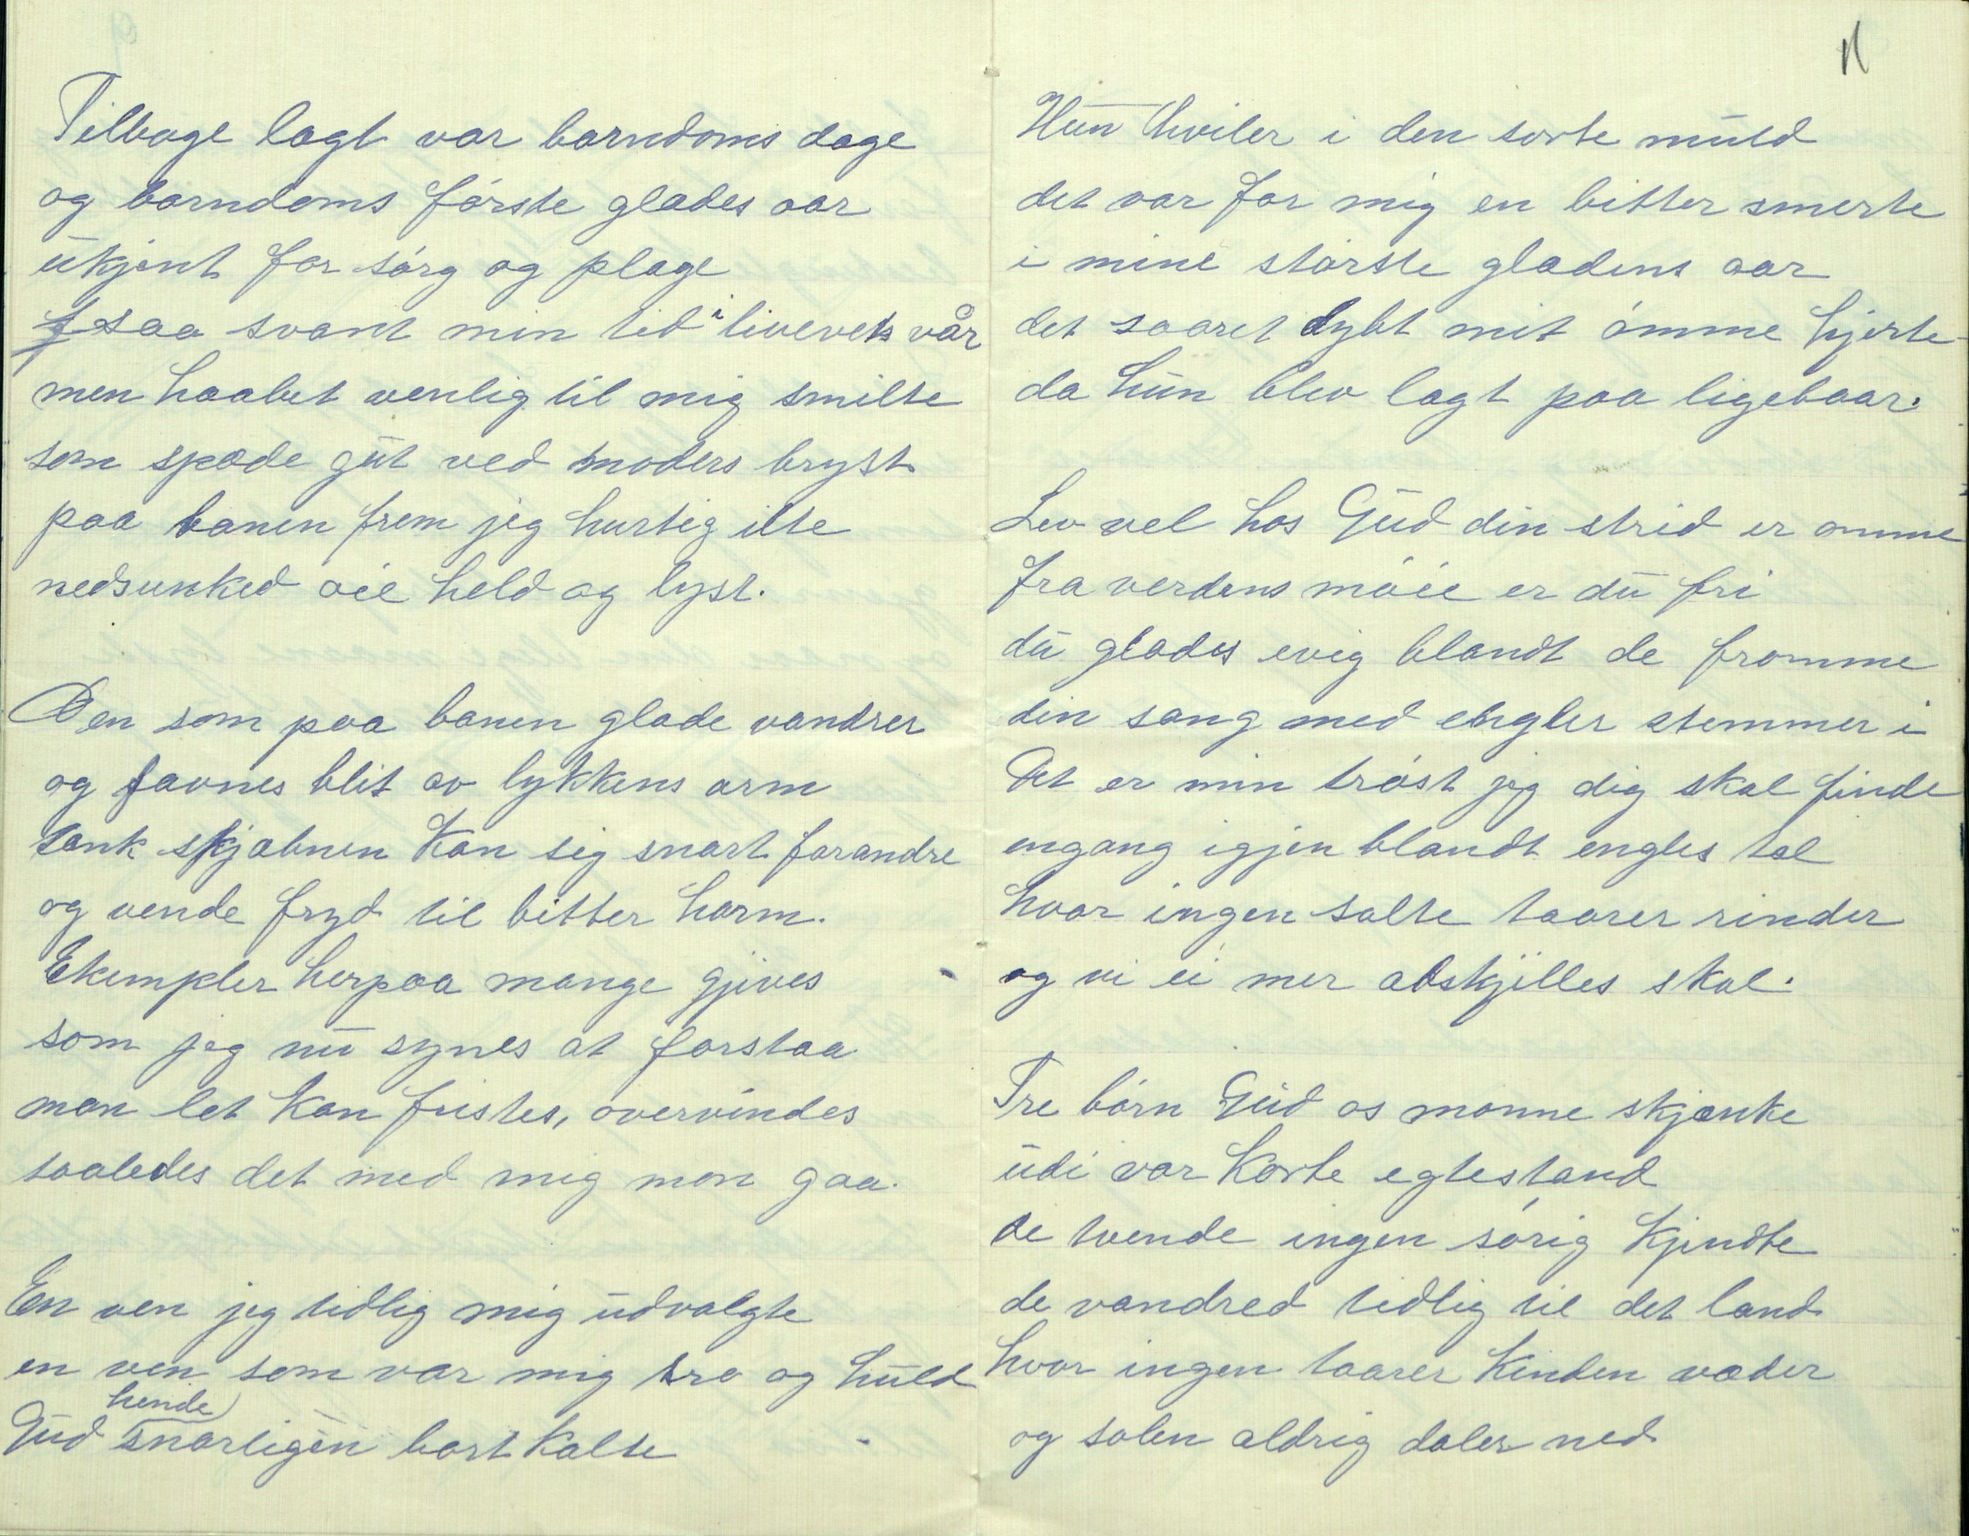 Tilbage lagt var barndoms dage
og barndoms første glædes aar
ukjent for sórg og plage
saa svant min tid i livevets vår
men haabet venlig til mig smilte
som spæde gut ved moders bryst
paa banen frem jeg hurtig ilte
nedsunked óie held og lyst.
Den som paa banen glade vandrer
og favnes blit av lykkens arm
tænk skjæbnen kan sig snart forandre
og vende fryd til bitter harm.
Ekempler herpaa mange gjives
som jeg nu synes at forstaa
man let kan fristes, overvindes
saaledes det med mig mon gaa.
En ven jeg tidlig mig udvalgte
en ven som var mig tro og huld
Gud hende snarligen bort kalte
11
Hun hviler i den sorte muld
det var for mig en bitter smerte
i mine største glædens aar
det saaret dybt mit ómme hjerte
da hun blev lagt paa ligebaar.
Lev vel hos Gud din strid er omme
fra verdens móie er du fri
du glædes evig blandt de fromme
din sang med engler stemmer i
Det er min tróst jeg dig skal finde
engang igjen blandt engles tal
hvor ingen salte taarer rinder
og vi ei mer adskjilles skal.
Tre bórn Gud os monne skjænke
udi vor korte egtestand
de tvende ingen sórig kjendte
de vandred tidlig til det land
hvor ingen taarer kinden væder
og solen aldrig daler ned